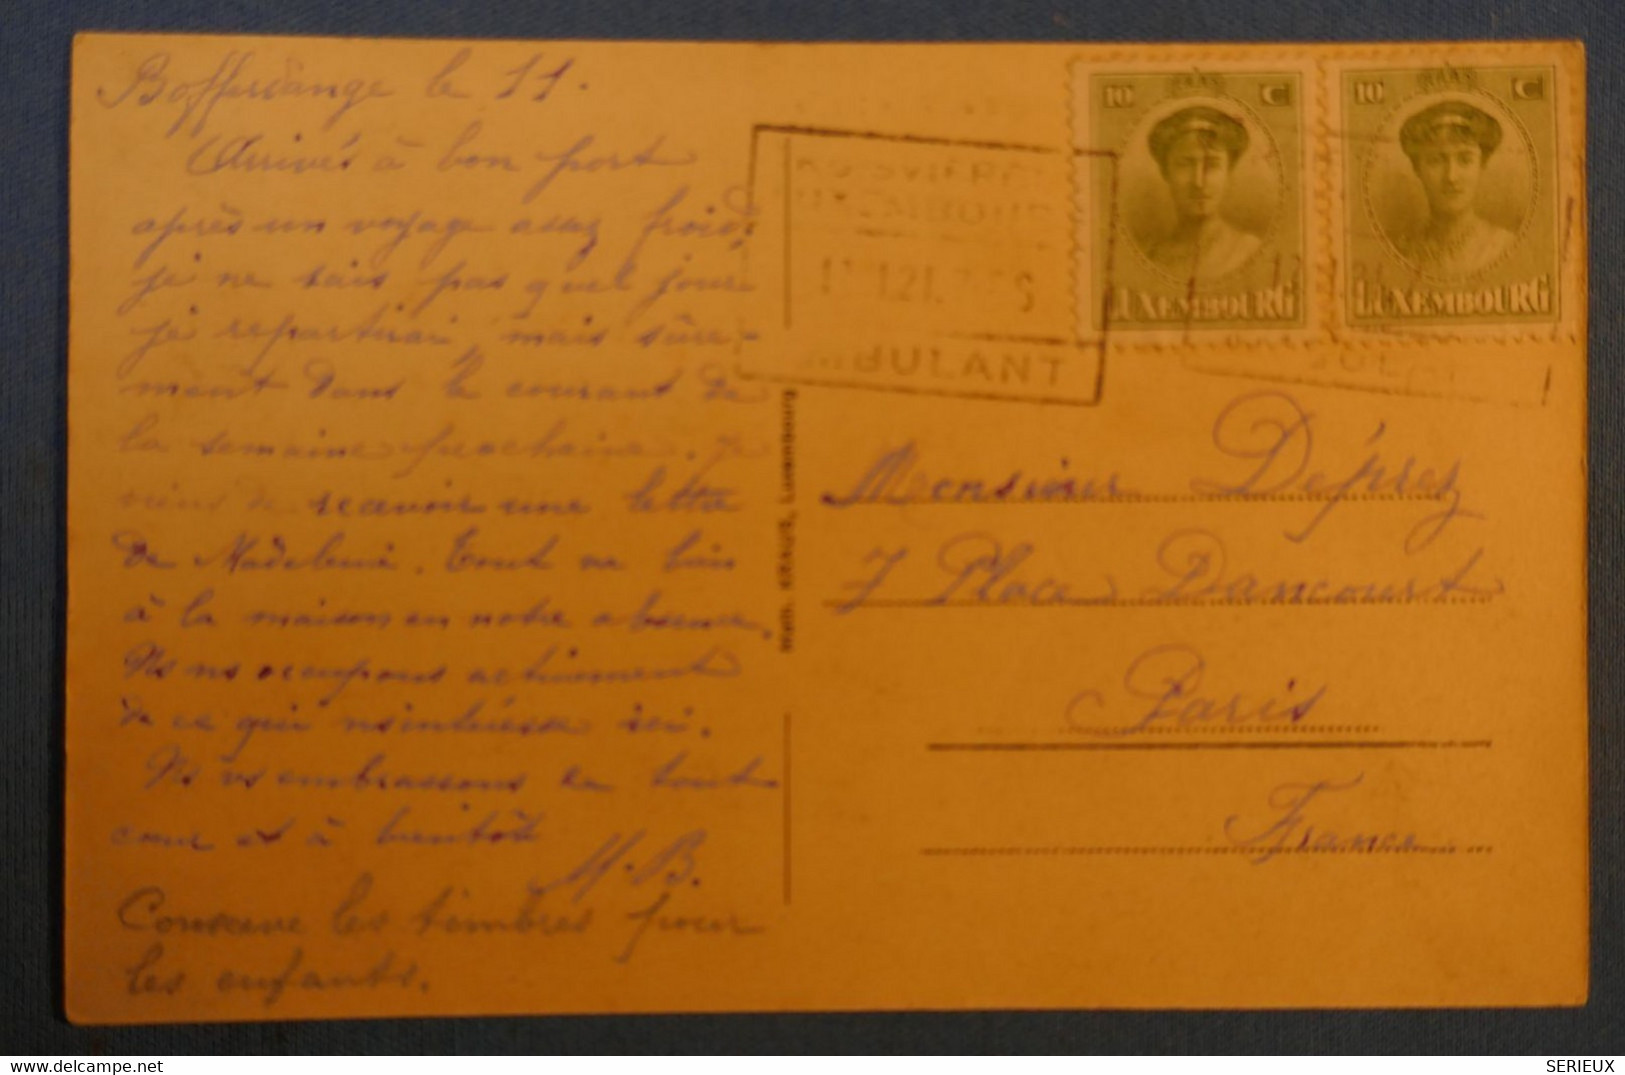 Bofferdange le 11.
Arrivés à bon port
après un voyage assez froid,
je ne sais pas quel jour
je repartirai, mais sûre-
ment dans le courant de
la semaine prochaine. Je
viens de recevoir une lettre
de Madeleine. Tout va bien
à la maison en notre absence.
Ns ns occupons activement
de ce qui ns intéresse ici.
Ns vs embrassons de tout
cœur et à bientôt
M.B.
Conserve les timbres pour
les enfants.
10 C
LUXEMBOURG
10 C
LUXEMBOURG
AMBULANT
Luxembourg
Monsieur Déprez
7 Place Dancourt
Paris
France
SERIEUX